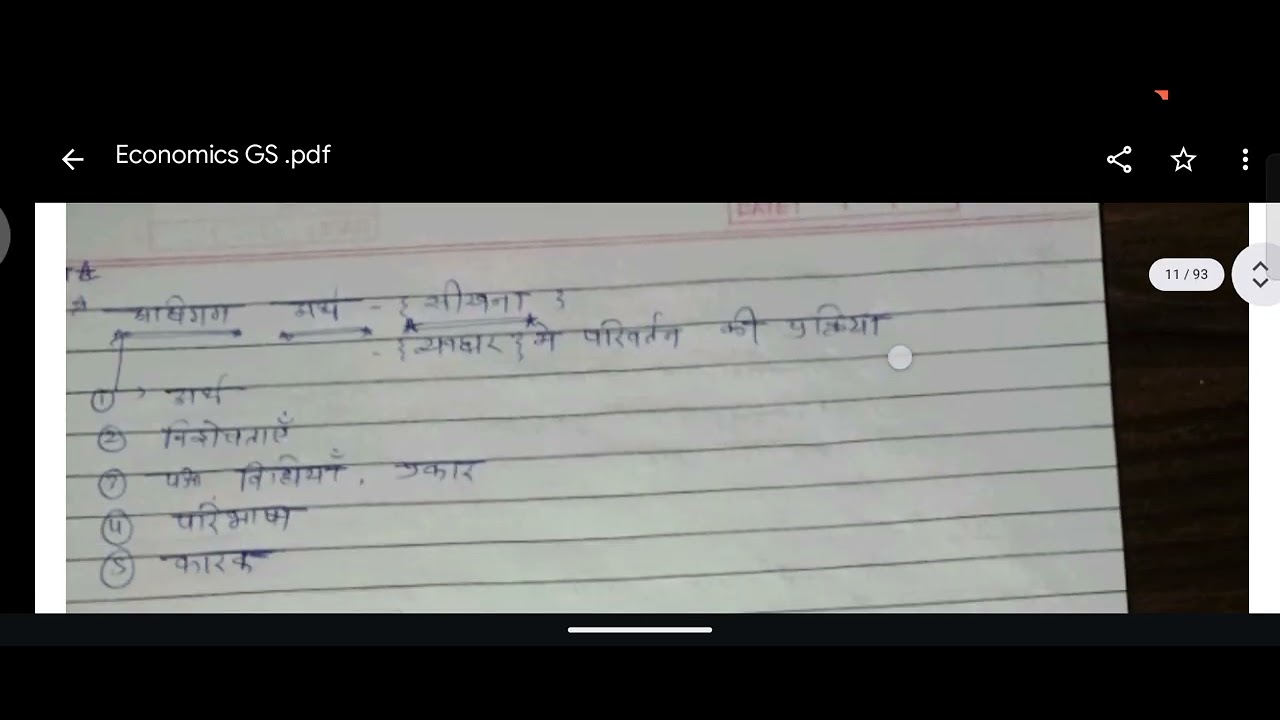 Economics GS .pdf
11 / 93
अधिगम अर्थ - { सीखना }
- { व्यवहार } मे परिवर्तन की प्रक्रिया
① → अर्थ
② विशेषताएँ
विधियाँ, प्रकार
④ परिभाषा
⑤ कारक